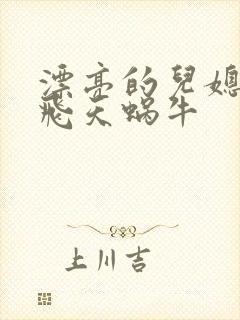 漂亮的兒媳
飛天蝸牛
上川吉